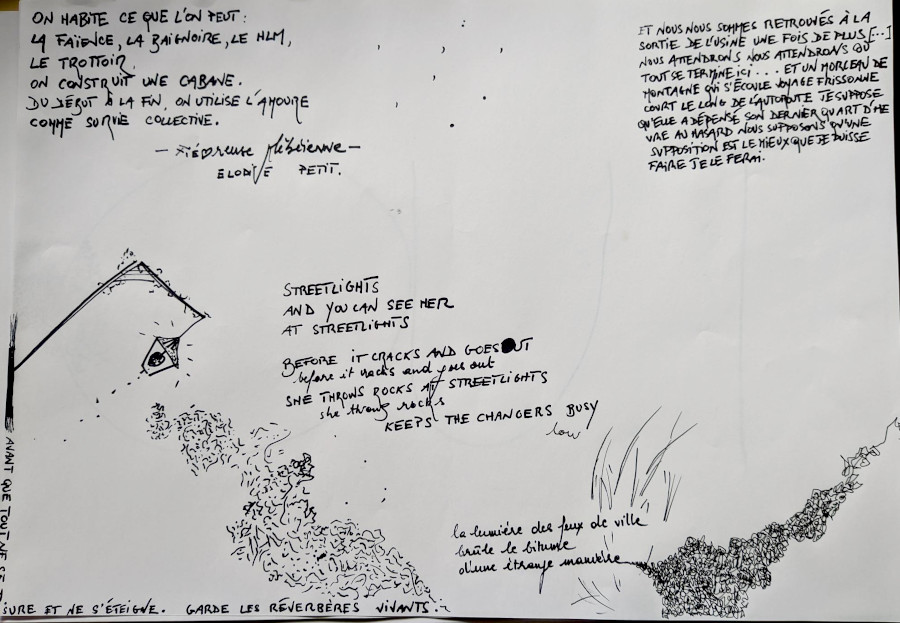 ON HABITE CE QUE L'ON PEUT :
LA FAÏENCE, LA BAIGNOIRE, LE HLM,
LE TROTTOIR.
ON CONSTRUIT UNE CABANE.
DU DÉBUT À LA FIN, ON UTILISE L'AMOURE
COMME SURVIE COLLECTIVE.
— Fiévreuse plébéienne —
ELODIE PETIT.
ET NOUS NOUS SOMMES RETROUVÉS À LA
SORTIE DE L'USINE UNE FOIS DE PLUS [...]
NOUS ATTENDRONS NOUS ATTENDRONS QU
TOUT SE TERMINE ICI . . . ET UN MORCEAU DE
MONTAGNE QUI S'ÉCOULE VOYAGE FRISSONNE
COURT LE LONG DE L'AUTOROUTE JE SUPPOSE
QU'ELLE A DÉPENSÉ SON DERNIER QUART D'HE
VRE AU HASARD NOUS SUPPOSONS QU'UNE
SUPPOSITION EST LE MIEUX QUE JE PUISSE
FAIRE JE LE FERAI.
STREETLIGHTS
AND YOU CAN SEE HER
AT STREETLIGHTS
BEFORE IT CRACKS AND GOES OUT
before it cracks and goes out
SHE THROWS ROCKS AT STREETLIGHTS
she throws rocks
KEEPS THE CHANGERS BUSY
low
la lumière des feux de ville
brûle le bitume
d'une étrange manière
AVANT QUE TOUT NE SE
SURE ET NE S'ÉTEIGNE. GARDE LES RÉVERBÈRES VIVANTS.